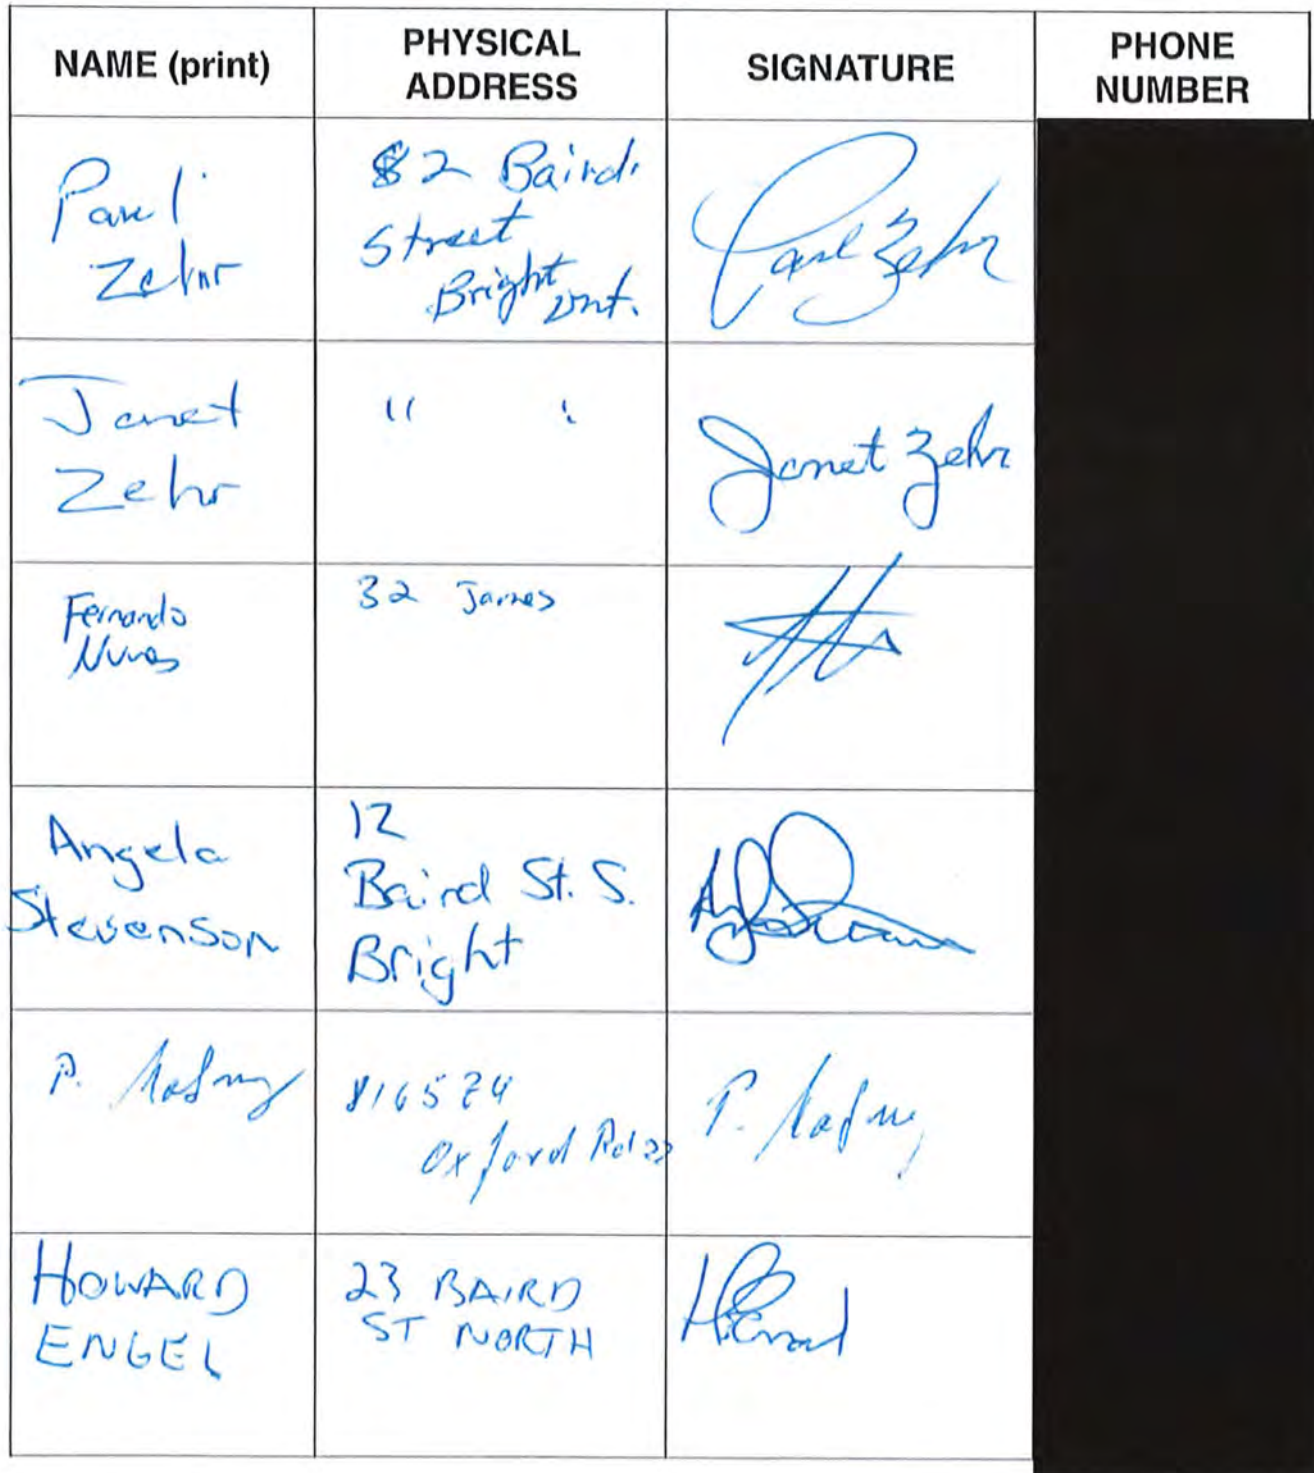 NAME (print)
PHYSICAL
ADDRESS
SIGNATURE
PHONE
NUMBER
Paul
Zehr
82 Baird
Street
Bright Ont.
Paul Zehr
Janet
Zehr
" "
Janet Zehr
Fernando
Nunes
32 James
Angela
Stevenson
12
Baird St. S.
Bright
P.
816524
Oxford Rd 22
P.
HOWARD
ENGEL
23 BAIRD
ST NORTH